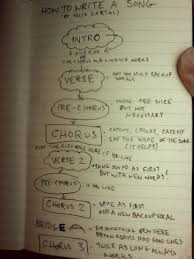 HOW TO WRITE A SONG
(BY FELIX CARTAL)
INTRO
VERSE
NOT TOO MUCH BACKUP
VOCALS
PRE-CHORUS
THESE ARE NICE
BUT NOT
NECESSARY
CHORUS
CATCHY, CATCHY, CATCHY
SAY THE NAME OF THE SONG
(IT HELPS)
IF YOU LIKE
VERSE 2
SAME SONG AS FIRST
BUT WITH NEW WORDS!
PRE-CHORUS
IF YOU LIKE
CHORUS 2
SAME AS FIRST
ADD A NEW BACKUP VOCAL
BRIDGE
DO SOMETHING NEW HERE
BRYAN ADAMS HAD GOOD ONES
CHORUS 3
TWICE AS LONG & ALWAYS
WORDS